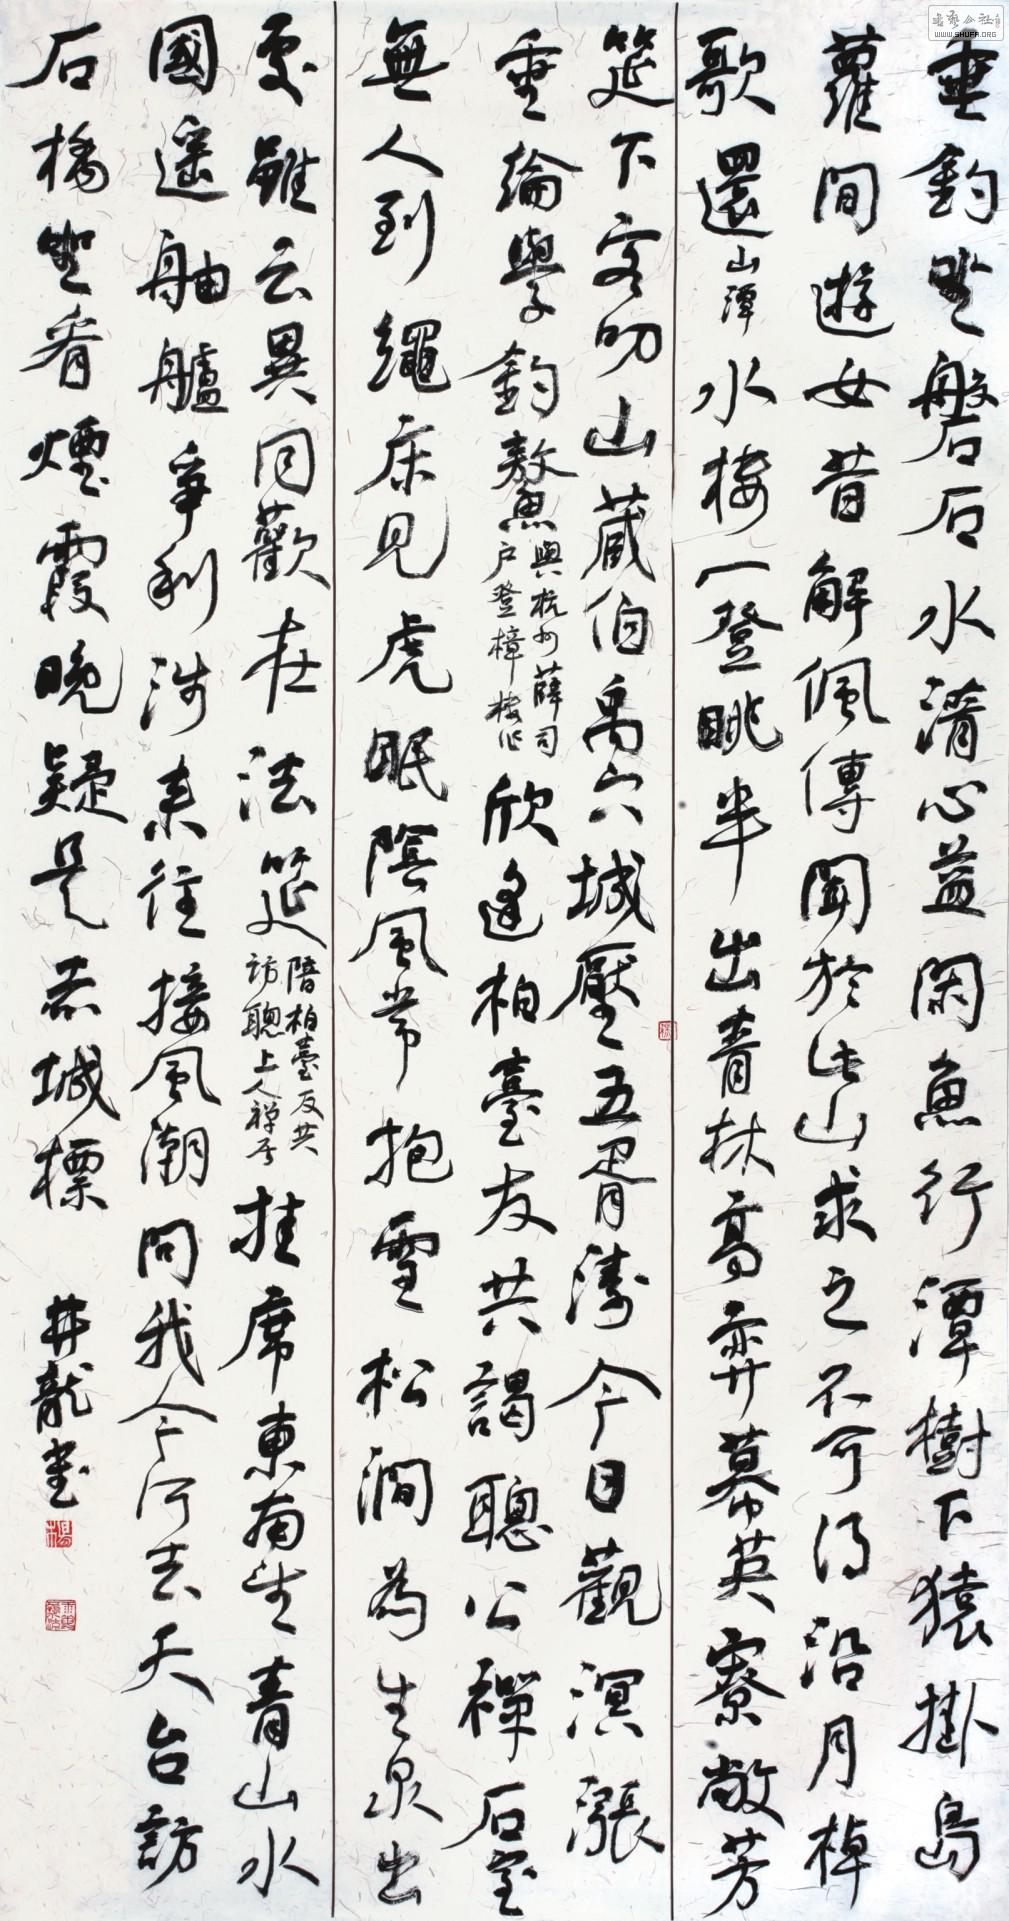 垂釣坐磐石水清心益閑魚行潭樹下猿掛島
蘿間遊女昔解佩傳聞於此山求之不可得沿月棹
歌還山潭水樓一登眺半出青林高帟幕英寮敞芳
筵下客叨山藏伯禹穴城壓五胥濤今日觀溟漲
垂綸學釣鰲與杭州薛司戶登樟樓作欣逢柏臺友共謁聰公禪石室
無人到繩床見虎眠陰風常抱雪松澗為生泉出
處雖云異同歡在法筵陪柏臺友共訪聰上人禪居挂席東南望青山水
國遥舳艫爭利涉來往接風潮問我今何去天台訪
石橋坐看煙霞晚疑是赤城標
井龍書
WWW.SHUFA.ORG